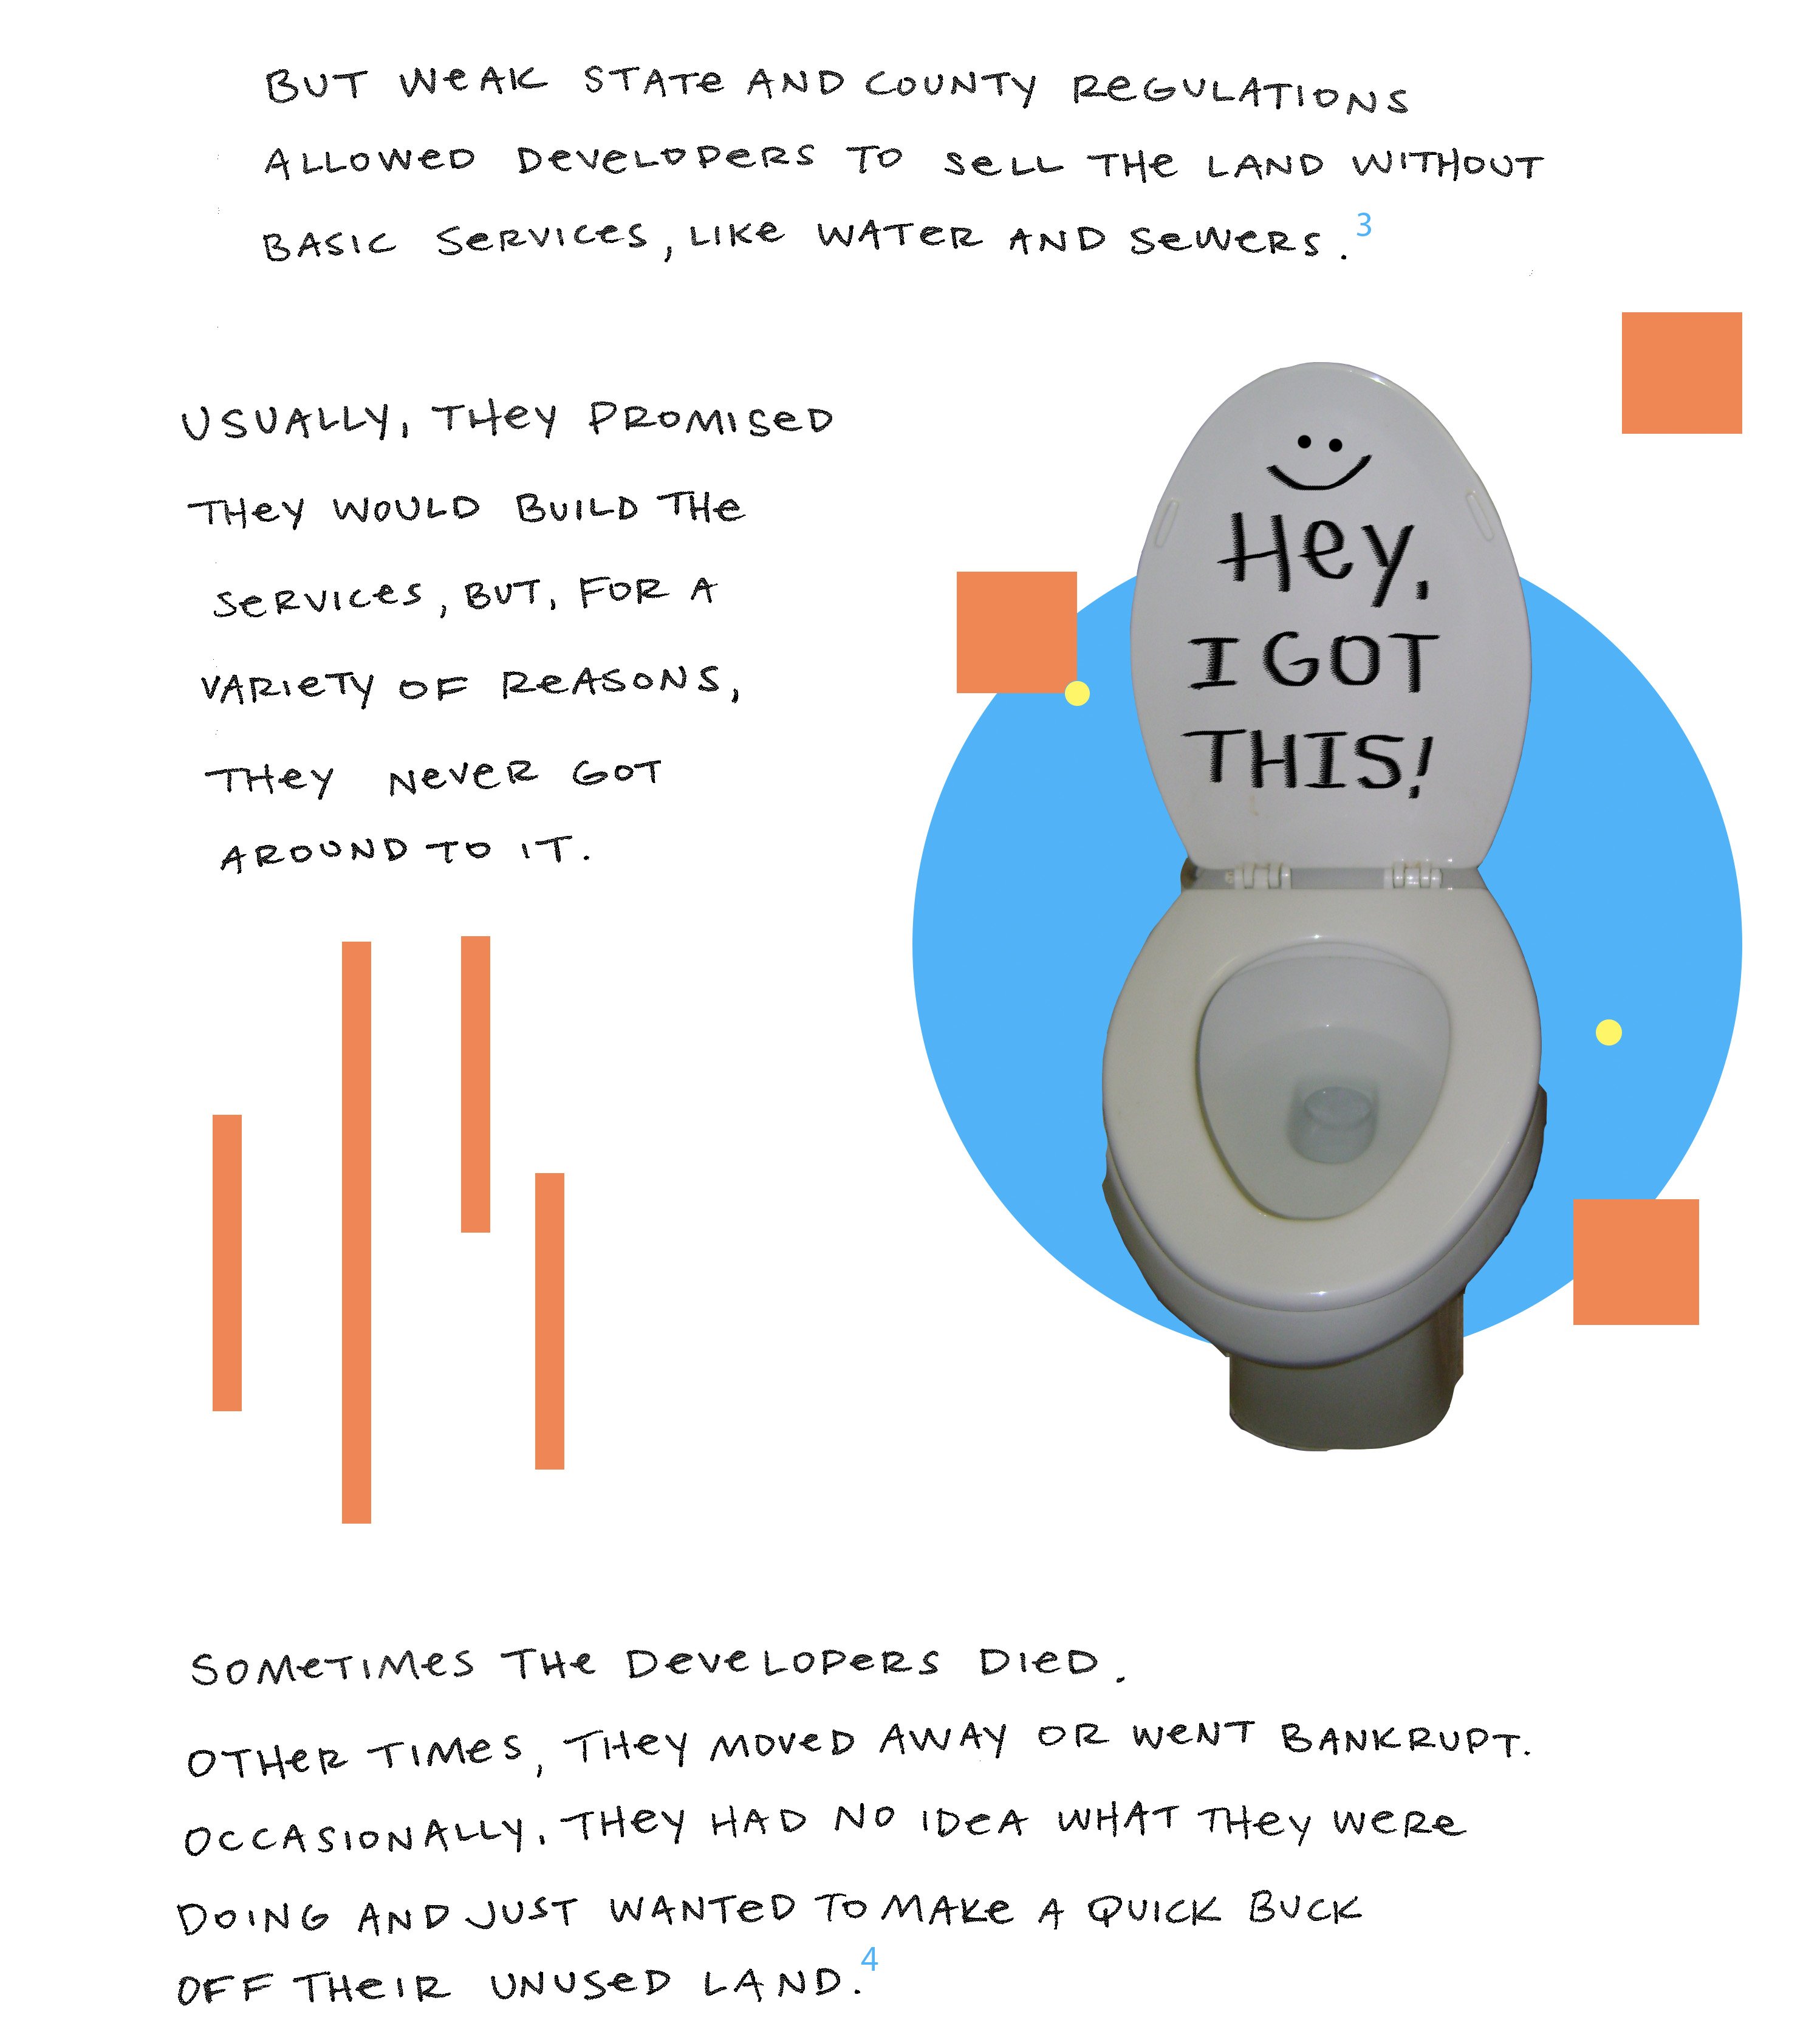 BUT WEAK STATE AND COUNTY REGULATIONS
ALLOWED DEVELOPERS TO SELL THE LAND WITHOUT
BASIC SERVICES, LIKE WATER AND SEWERS. 3
USUALLY, THEY PROMISED
THEY WOULD BUILD THE
SERVICES, BUT, FOR A
VARIETY OF REASONS,
THEY NEVER GOT
AROUND TO IT.
HEY,
I GOT
THIS!
SOMETIMES THE DEVELOPERS DIED.
OTHER TIMES, THEY MOVED AWAY OR WENT BANKRUPT.
OCCASIONALLY, THEY HAD NO IDEA WHAT THEY WERE
DOING AND JUST WANTED TO MAKE A QUICK BUCK
OFF THEIR UNUSED LAND. 4